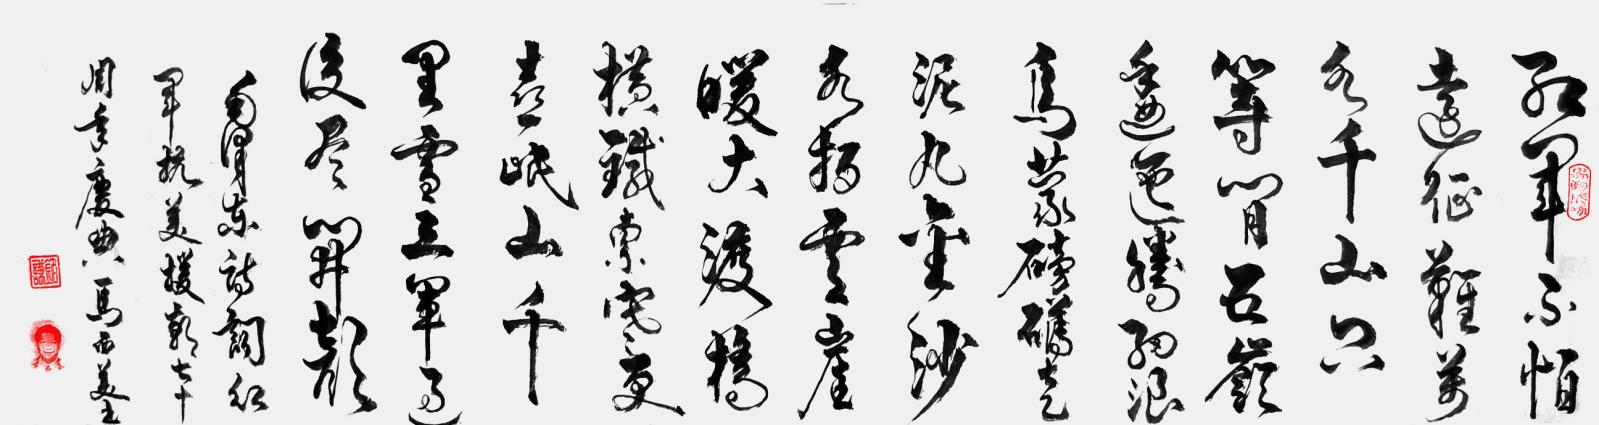 紅軍不怕
遠征難萬
水千山只
等閒五嶺
逶迤騰細浪
烏蒙磅礴走
泥丸金沙
水拍雲崖
暖大渡橋
橫鐵索寒更
喜岷山千
里雪三軍過
後尽開顏
毛澤東詩詞紅
軍抗美援朝七十
周年慶典馬西美